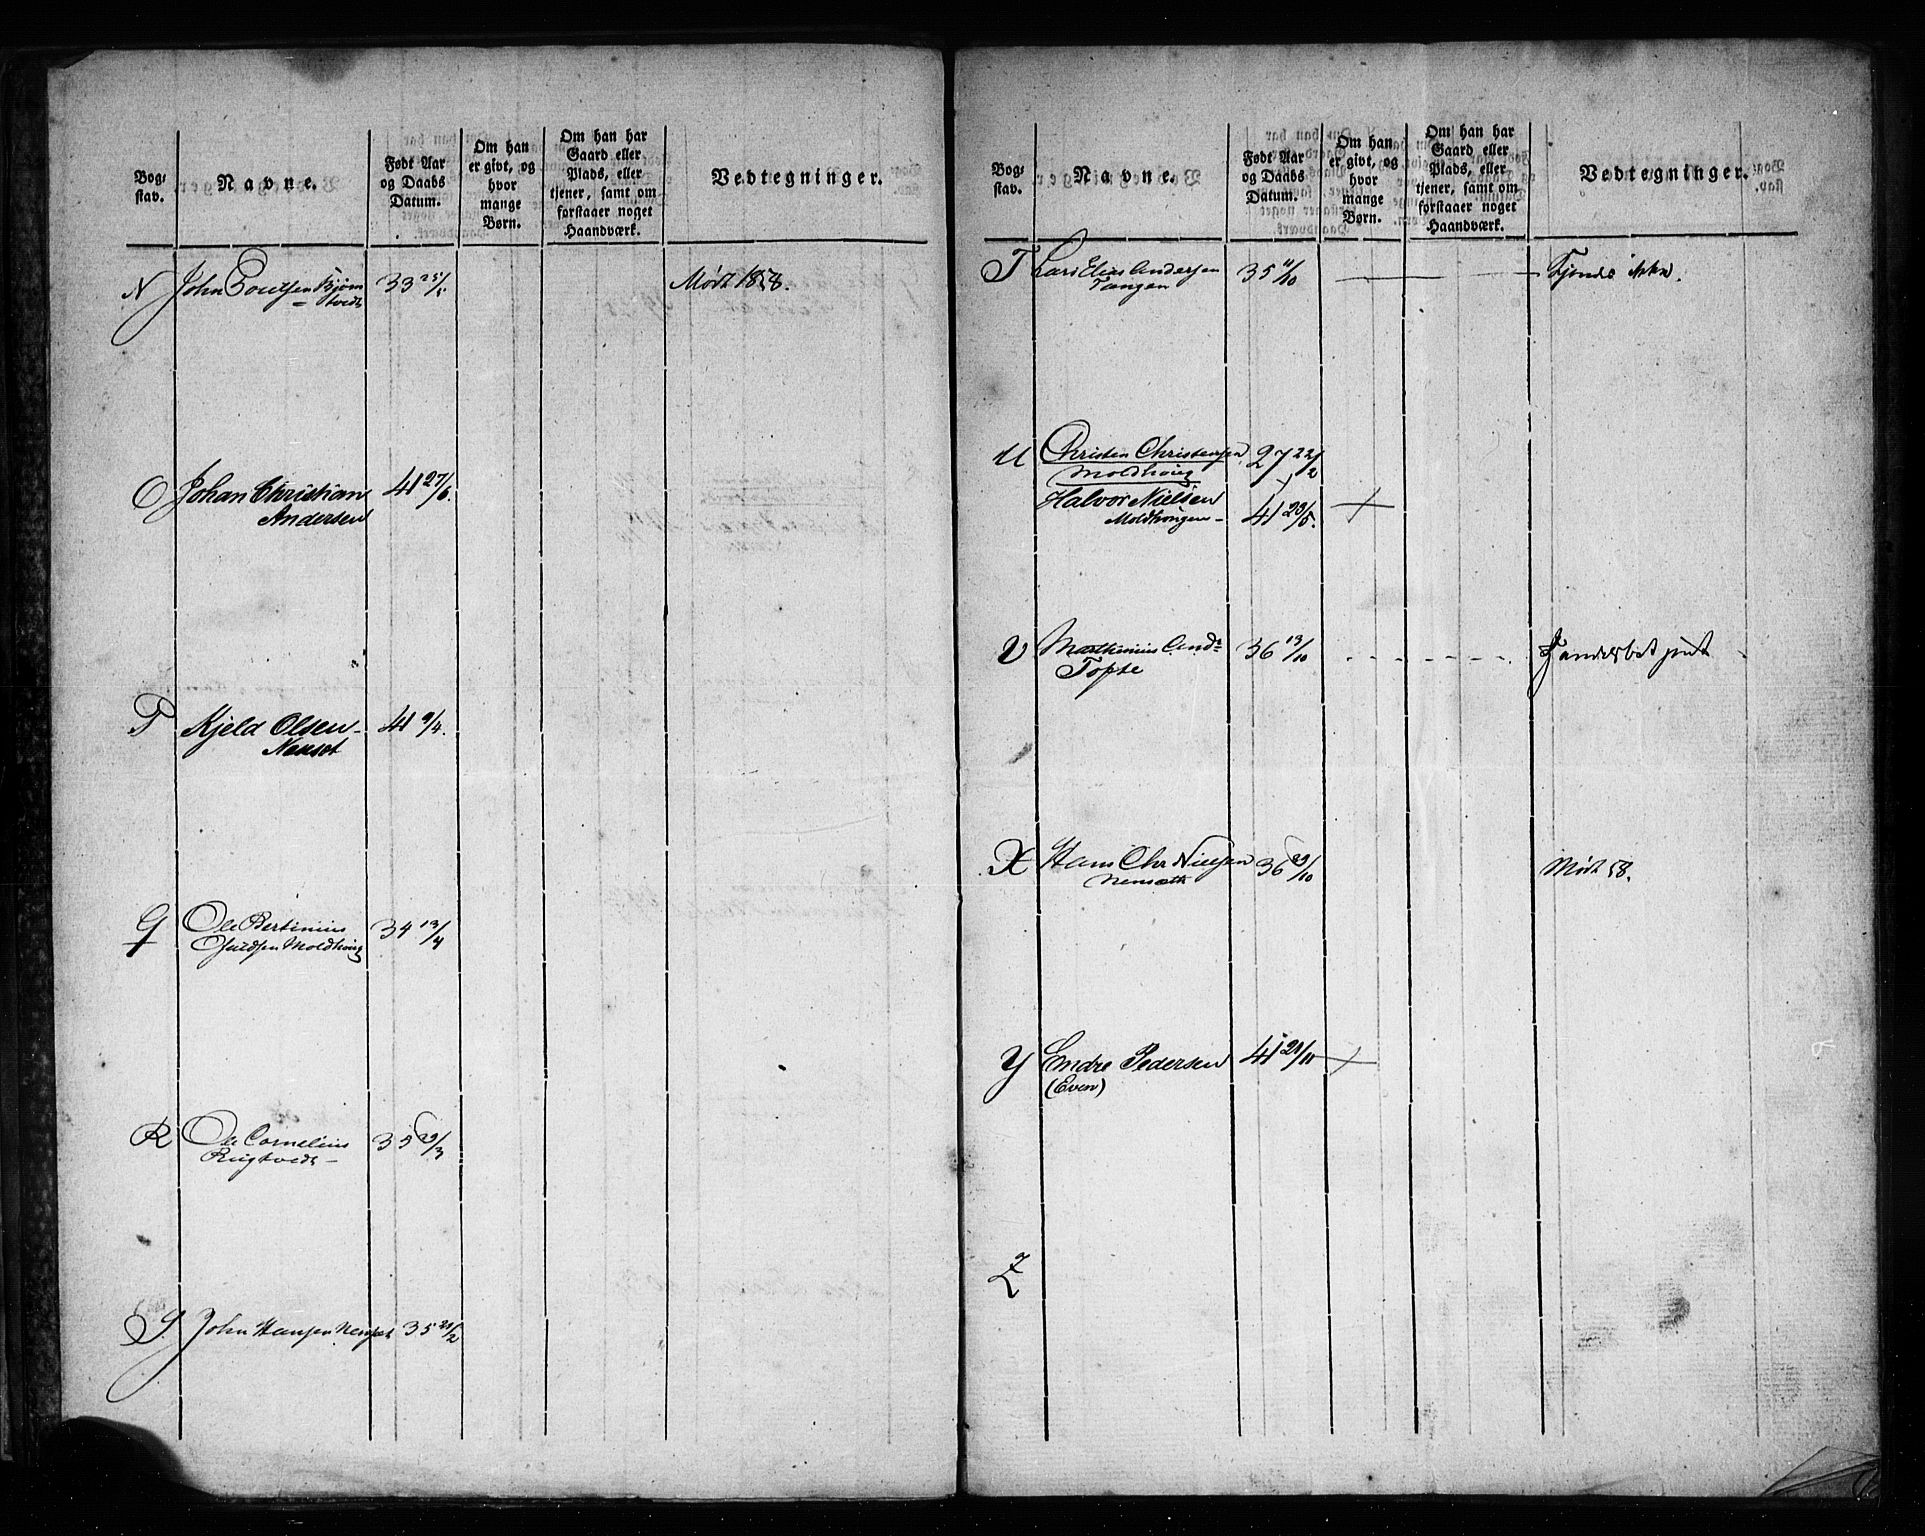 Bog-
stav.
Navne.
Født Aar
og Daabs
Datum.
Om han
er givt, og
hvor
mange
Børn.
Om han har
Gaard eller
Plads, eller
tjener, samt om
forstaaer noget
Haandværk.
Vedtegninger.
N John Poulsen Bjørn 33 25/5 Mødt 1858.
tvedt
O Johan Christian 41 27/6.
Andersen
P Kjeld Olsen 41 9/4.
Nenset
Q Ole Bertinius 34 13/4
Moldhoug
R Ole Cornelius 35 29/3
Rugtvedt
S John Hansen Nenset 35 21/2
Bog-
stav.
Navne.
Født Aar
og Daabs
Datum.
Om han
er givt, og
hvor
mange
Børn.
Om han har
Gaard eller
Plads, eller
tjener, samt om
forstaaer noget
Haandværk.
Vedtegninger.
T Lars Elias Andersen 35 11/10 — — Fjendes ikke.
Tangen
U Christen Christensen 27 22/2
Moldhoug
Halvor Nielsen
Moldhougen 41 23/5. +
V Marthinius And: 36 13/10
Tofte
X Hans Chr Nielsen 36 29/10 Mødt 58.
Nensæth
Y Endre Pedersen 41 21/10 +
(Even)
Z